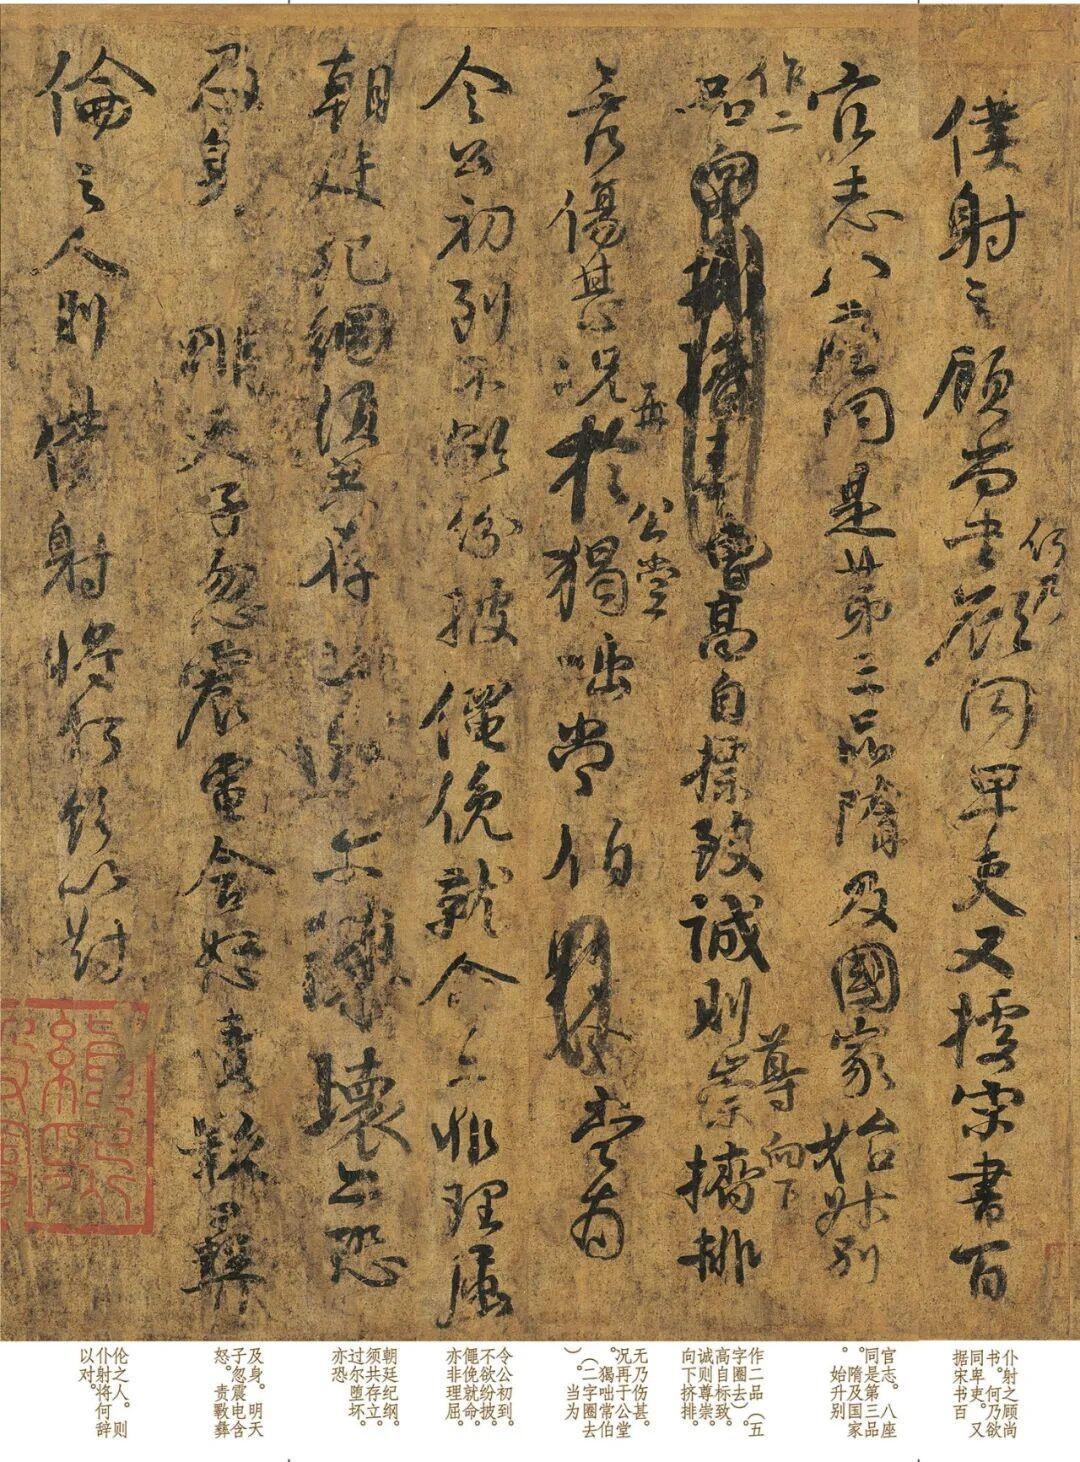 僕射之顧尚書何乃欲同卑吏又據宋書百
官志八座同是第三品隋及國家始升別
作二品高自標致誠則尊崇向下擠排
無乃傷甚況再於公堂猲咄常伯當為
令公初到不欲紛披僶俛就命亦非理屈
朝廷紀綱須共存立過爾隳壞亦恐
及身明天子忽震電含怒責斁彝
倫之人則僕射將何辭以對
仆射之顾尚
书。何乃欲
同卑吏。又
据宋书百
官志。八座
同是第三品
。隋及国家
始升别
作二品（五
字圈去）。
高自标致。
诚则尊崇。
向下挤排。
无乃伤甚。
况再于公堂
猲咄常伯
（二字圈去
）。当为
令公初到。
不欲纷披。
僶俛就命。
亦非理屈
朝廷纪纲。
须共存立。
过尔堕坏。
亦恐
及身。明天
子忽震电含
怒。责斁彝
伦之人。则
仆射将何辞
以对。